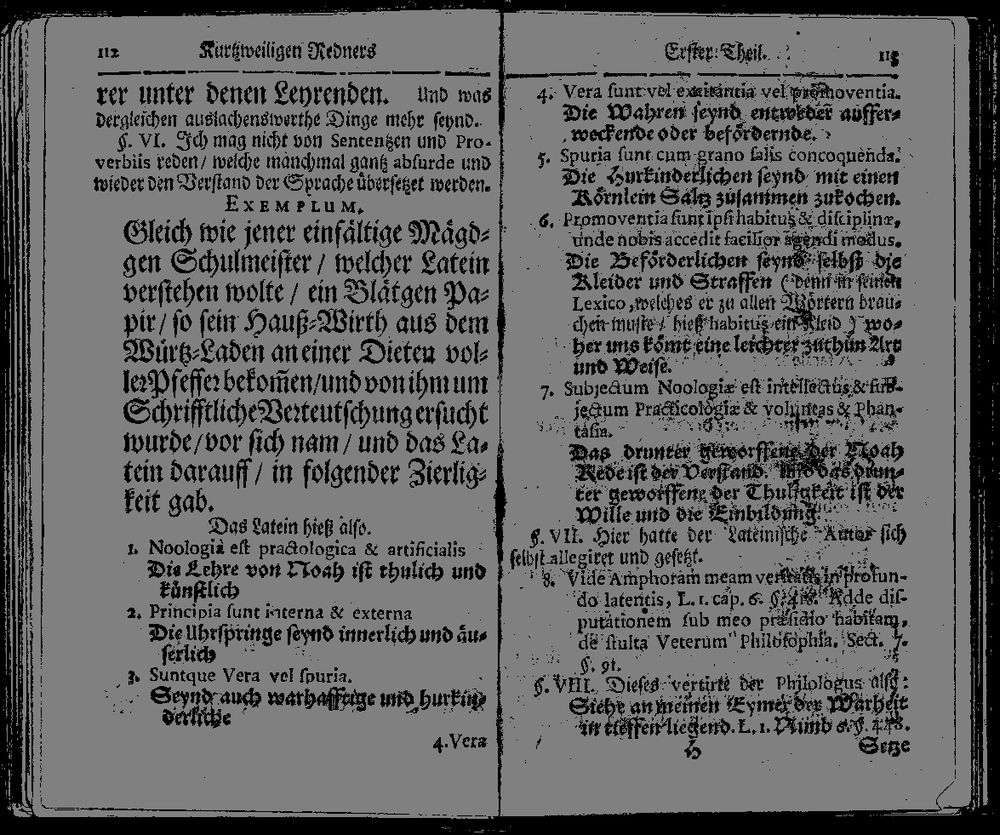 112 Kurtzweiligen Redners
rer unter denen Lehrenden. Und was
dergleichen auslachenswerthe Dinge mehr seynd.
§. VI. Ich mag nicht von Sentenzen und Pro-
verbiis reden / welche manchmal gantz absurde und
wieder den Verstand der Sprache übersetzet werden.
EXEMPLUM.
Gleich wie jener einfältige Mägd-
gen Schulmeister / welcher Latein
verstehen wolte / ein Blätgen Pa-
pir / so sein Hauß-Wirth aus dem
Würtz-Laden an einer Dieten vol-
ler Pfeffer bekom̃en / und von ihm um
Schrifftliche Verteutschung ersucht
wurde / vor sich nam / und das La-
tein darauff / in folgender Zierlig-
keit gab.
Das Latein hieß also.
1. Noologia est practologica & artificialis
Die Lehre von Noah ist thulich und
künstlich
2. Principia sunt interna & externa
Die Uhrspringe seynd innerlich und äu-
serlich
3. Suntque Vera vel spuria.
Seynd auch warhafftige und hurkin-
derliche
4. Vera
Erster Theil. 113
4. Vera sunt vel excitantia vel promoventia.
Die Wahren seynd entweder auffer-
weckende oder befördernde.
5. Spuria sunt cum grano salis concoquenda.
Die Hurkinderlichen seynd mit einen
Körnlein Saltz zusammen zukochen.
6. Promoventia sunt ipsi habitus & disciplinæ,
unde nobis accedit facilior agendi modus.
Die Beförderlichen seynd selbst die
Kleider und Straffen (denn in seinen
Lexico, welches er zu allen Wörtern brau-
chen muste / hieß habitus ein Kleid) wo-
her uns kömt eine leichter zuthun Art
und Weise.
7. Subjectum Noologiæ est intellectus & sub-
jectum Practicologiæ & voluntas & Phan-
tasia.
Das drunter geworffene der Noah
Rede ist der Verstand. Und das drun-
ter geworffene der Thuligkeit ist der
Wille und die Einbildung.
§. VII. Hier hatte der Lateinische Autor sich
selbst allegiret und gesetzt.
8. Vide Amphoram meam veritatis in profun-
do latentis, L. 1. cap. 6. §. 418. Adde dis-
putationem sub meo præsidio habitam,
de stulta Veterum Philosophia. Sect. 7.
§. 91.
§. VIII. Dieses vertirte der Philologus also:
Siehe an meinen Eymer der Warheit
in tieffen liegend. L. 1. Nimb 6. §. 448.
H Setze